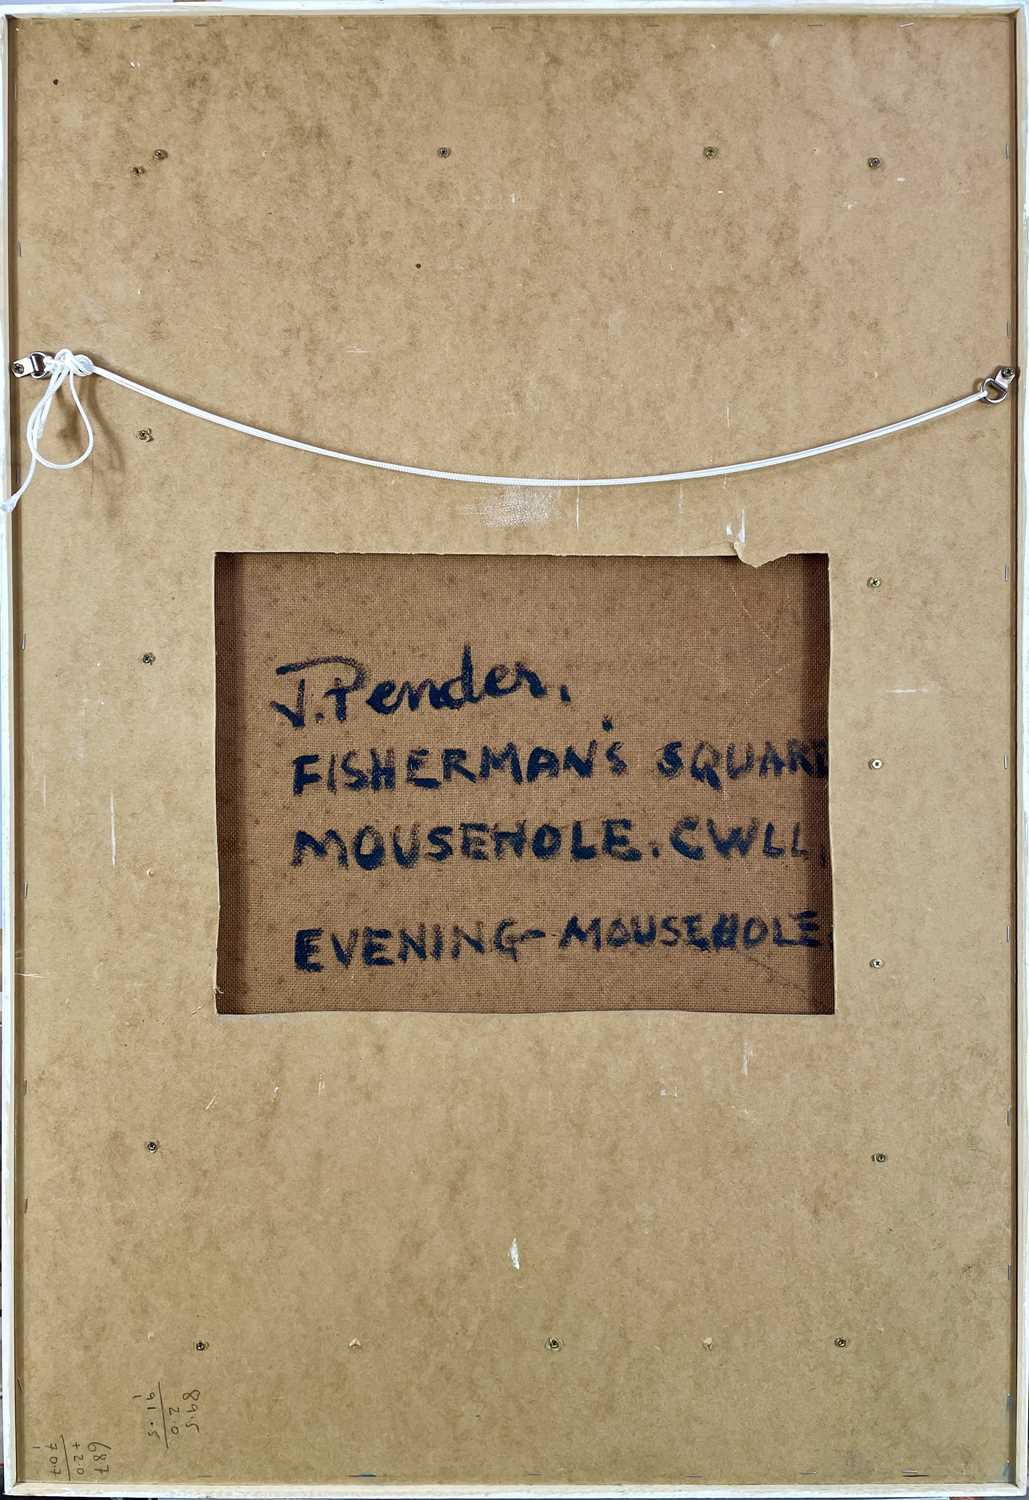 J. Pender.
FISHERMAN'S SQUARE
MOUSEHOLE. CWLL.
EVENING - MOUSEHOLE
89.5
2.0
91.5
1
687
+2.0
707
1